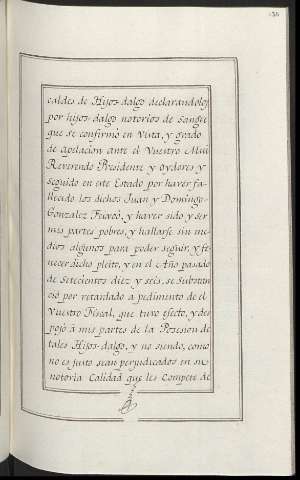 caldes de Hijos-dalgo declarandolos
por hijos-dalgo notorios de Sangre
que se confirmó en Vista, y grado
de apelacion ante el Vuestro Mui
Reverendo Presidente y Oydores y
seguido en este Estado por haver fa-
llecido los dichos Juan y Domingo
Gonzalez Feixoó, y haver sido y ser
mis partes pobres, y hallarse sin me-
dios algunos para poder seguir, y fe-
necer dicho pleito, y en el Año pasado
de Setecientos diez y seis, se substan-
ció por retardado a pedimento de el
Vuestro Fiscal, que tuvo efecto, y des-
pojó á mis partes de la Posesion de
tales Hijos-dalgo, y no siendo, como
no es justo sean perjudicados en su
notoria Calidad que les Compete de